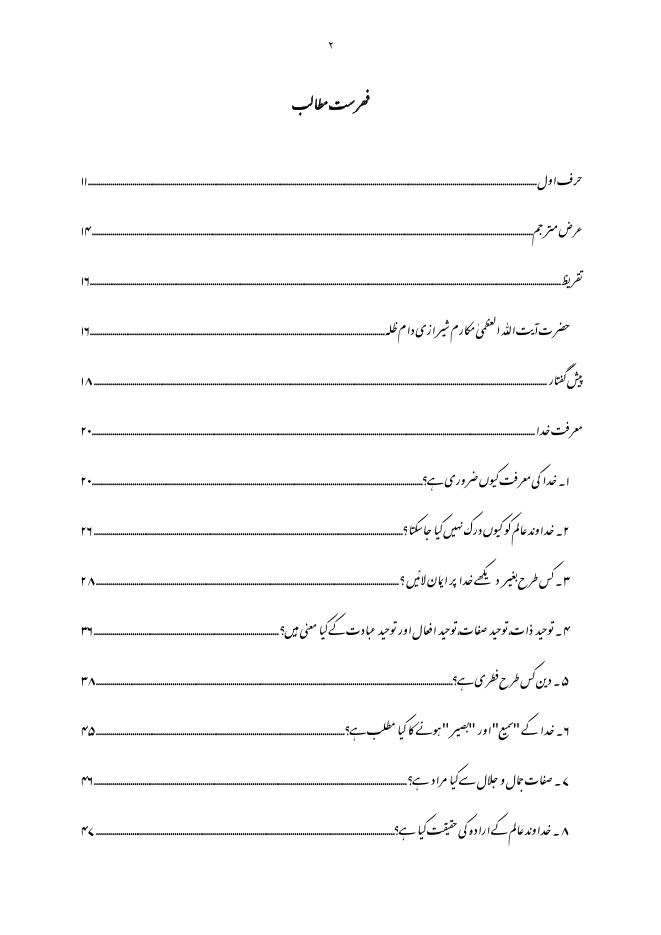 ۲
فہرست مطالب
حرف اول ۱۱
عرض مترجم ۱۴
تقریظ ۱۶
حضرت آیت اللہ العظمیٰ مکارم شیرازی دام ظلہ ۱۶
پیش گفتار ۱۸
معرفت خدا ۲۰
۱۔ خدا کی معرفت کیوں ضروری ہے؟ ۲۰
۲۔ خداوندعالم کو کیوں درک نہیں کیا جاسکتا ؟ ۲۶
۳۔ کس طرح بغیر دیکھے خدا پر ایمان لائیں ؟ ۲۸
۴۔ توحید ذات،توحید صفات،توحید افعال اور توحید عبادت کے کیا معنی ہیں؟ ۳۶
۵۔ دین کس طرح فطری ہے؟ ۳۸
۶۔ خدا کے "سمیع" اور "بصیر" ہونے کا کیا مطلب ہے؟ ۴۵
۷۔ صفات جمال و جلال سے کیا مراد ہے؟ ۴۶
۸۔ خداوندعالم کے ارادہ کی حقیقت کیا ہے؟ ۴۷